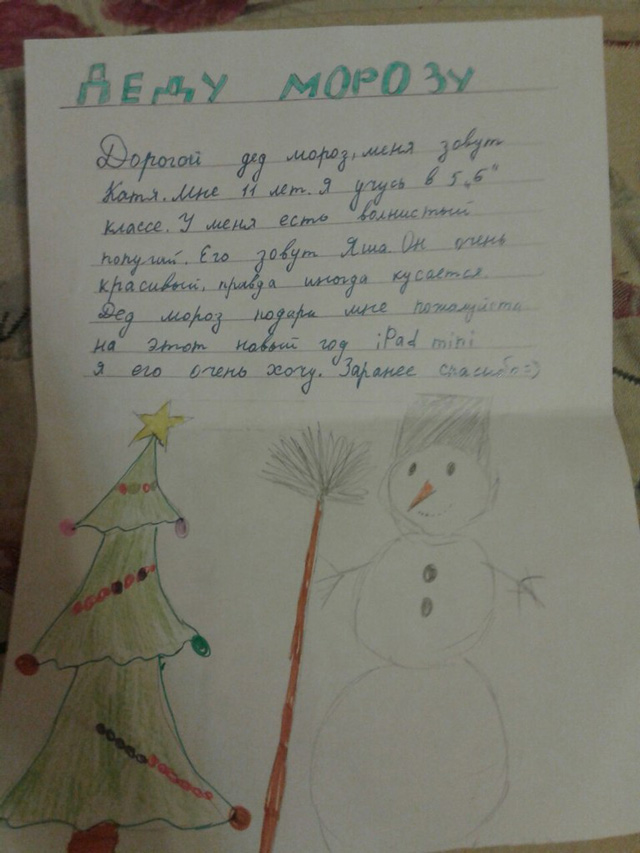 ДЕДУ МОРОЗУ
Дорогой дед мороз, меня зовут
Катя. Мне 11 лет. Я учусь в 5 „б“
классе. У меня есть волнистый
попугай. Его зовут Яша. Он очень
красивый, правда иногда кусается
Дед мороз подари мне пожалуйста
на этот новый год iPad mini
Я его очень хочу. Заранее спасибо =)